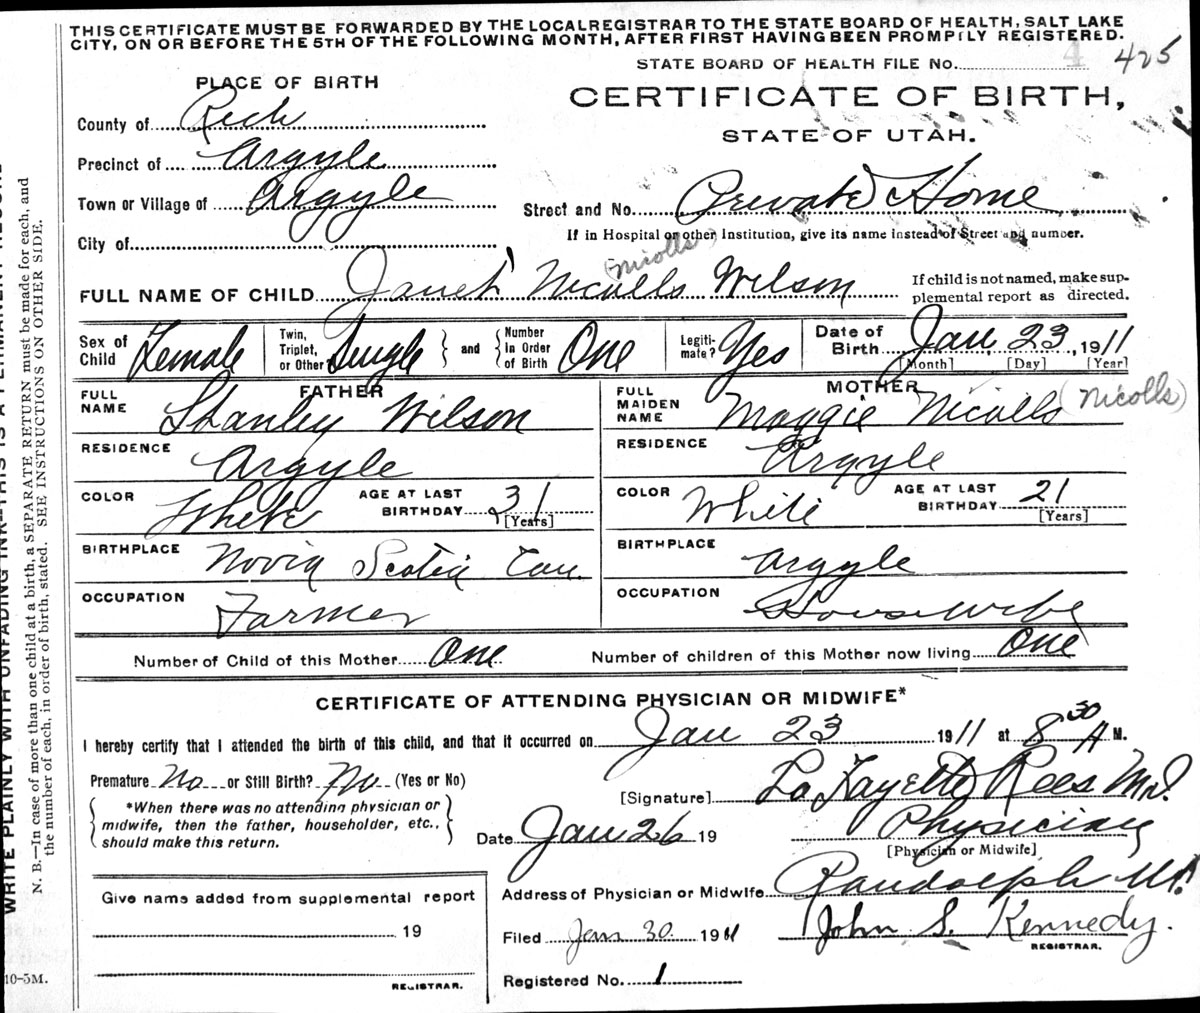 THIS CERTIFICATE MUST BE FORWARDED BY THE LOCAL REGISTRAR TO THE STATE BOARD OF HEALTH, SALT LAKE
CITY, ON OR BEFORE THE 5TH OF THE FOLLOWING MONTH, AFTER FIRST HAVING BEEN PROMPILY REGISTERED.
STATE BOARD OF HEALTH FILE No. 4 425
PLACE OF BIRTH
CERTIFICATE OF BIRTH,
STATE OF UTAH.
County of Rich
Precinct of Argyle
Town or Village of Argyle
Street and No. Private Home
City of
If in Hospital or other Institution, give its name instead of Street and number.
(Nicolls)
FULL NAME OF CHILD Janet Nicolls Wilson
If child is not named, make sup-
plemental report as directed.
Sex of Child Female
Twin, Triplet, or Other Single and Number In Order of Birth One
Legiti-mate? Yes
Date of Birth Jan, 23, 1911
[Month] [Day] [Year]
FATHER
FULL NAME Stanley Wilson
RESIDENCE Argyle
COLOR White AGE AT LAST BIRTHDAY 31 [Years]
BIRTHPLACE Novia Scotia Can.
OCCUPATION Farmer
MOTHER
FULL MAIDEN NAME Maggie Nicolls (Nicolls)
RESIDENCE Argyle
COLOR White AGE AT LAST BIRTHDAY 21 [Years]
BIRTHPLACE Argyle
OCCUPATION Housewife
Number of Child of this Mother One Number of children of this Mother now living One
CERTIFICATE OF ATTENDING PHYSICIAN OR MIDWIFE*
I hereby certify that I attended the birth of this child, and that it occurred on Jan 23 1911 at 8 30 A M.
Premature No or Still Birth? No (Yes or No)
[Signature] La Fayette Rees M.D.
*When there was no attending physician or
midwife, then the father, householder, etc.,
should make this return.
Date Jan 26 19
Physician
[Physician or Midwife]
Address of Physician or Midwife Randolph Ut.
Give name added from supplemental report
19
REGISTRAR.
Filed Jan 30 1911 John S. Kennedy.
REGISTRAR.
Registered No. 1
10-5M.
N. B.—In case of more than one child at a birth, a SEPARATE RETURN must be made for each, and
the number of each, in order of birth, stated. SEE INSTRUCTIONS ON OTHER SIDE.
WRITE PLAINLY WITH UNFADING INK—THIS IS A PERMANENT RECORD